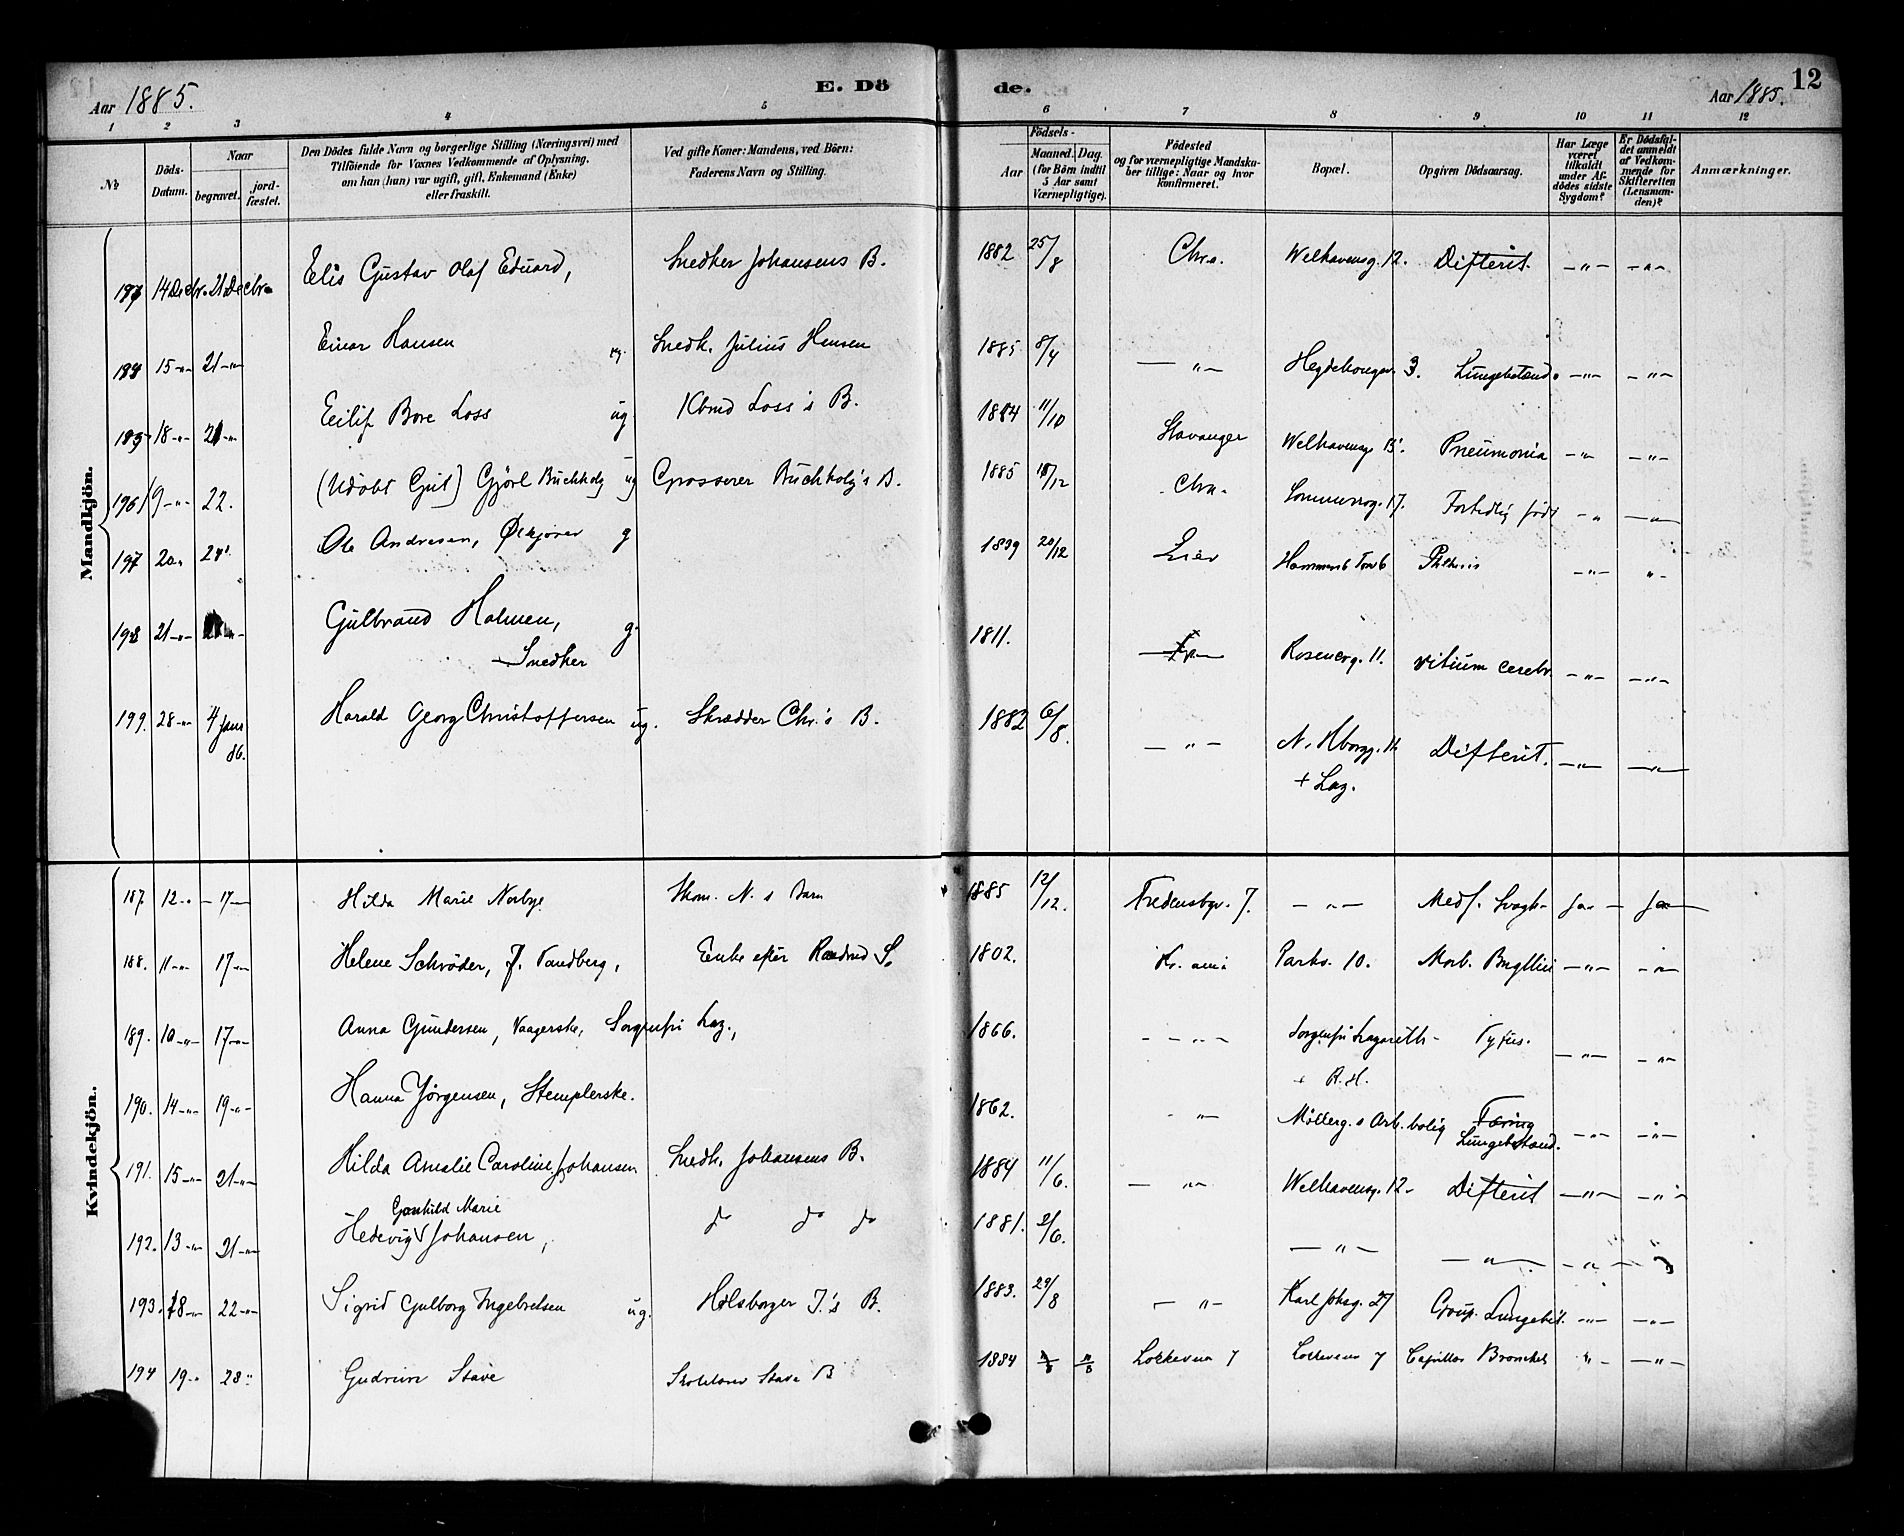 Aar 1885.
E. Dö
de.
Aar 1885.
12
1 2 3 4 5 6 7 8 9 10 11 12
№
Döds-Datum.
Naar
begravet.
jord-fæstet.
Den Dödes fulde Navn og borgerlige Stilling (Næringsvei) med
Tilföiende for Voxnes Vedkommende af Oplysning,
om han (hun) var ugift, gift, Enkemand (Enke)
eller fraskilt.
Ved gifte Koner: Mandens, ved Börn:
Faderens Navn og Stilling.
Födsels-
Aar
Maaned. Dag.
(for Börn indtil
5 Aar samt
Værnepligtige).
Födested
og for værnepligtige Mandska-
ber tillige: Naar og hvor
konfirmeret.
Bopæl.
Opgiven Dödsaarsag.
Har Læge
været
tilkaldt
under Af-
dödes sidste
Sygdom?
Er Dödsfal-
det anmeldt
af Vedkom-
mende for
Skifteretten
(Lensman-
den)?
Anmærkninger.
Mandkjön.
14 Decbr. 21 Decbr. Elis Gustav Olaf Eduard, Snedker Johansens B. 1882 25/8 Chra. Welhavensg. 12. Difterit. —"— —"—
15 —"— 21 —"— Einar Hansen ug. Snedk. Julius Hansen 1885 8/4 —"— Hegdehougsv. 3. Lungebetænd. —"— —"—
18 —"— 21 —"— Eilif Bore Loss ug Kbmd Loss's B. 1884 11/10 Stavanger Welhavensg Pneumonia —"— —"—
196 19 —"— 22. (Udöbt Gut) Gjörl Buchholz ug Grosserer Buchholz's B. 1885 /12 Chra. Sommerrog. 17. Fortidlig født —"— —"—
197 20 " Ole Andresen, g 1839 20/12 Lier Hammersb Torv 6 Phthisis —"— "—
198 21 —"— Gulbrand Holmen, g. 1811. Rosencrg. 11. vitium cerebr. —"— —"—
Snedker
199. 28 —"— 4 Janr Harald Georg Christoffersen ug. Skrædder Chr.'s B. 1882 6/8. —"— N. Hborgg. Difterit. —"— —"—
86.
+ Laz.
Kvindekjön.
187. 12 —"— 17 — Hilda Marie Norbye Skom. N.s Barn 1885 12/12. Fredensbgv. 7. —"— Medf. Svagh. Ja — Ja —
188. 11 —"— 17 —"— Helene Schröder, f. Tandberg, Enke efter S. 1802. Kr. ania Parkv. 10. Morb. Brigthii —"— —"—
189. 10 —"— 17 —"— Anna Gundersen, Vaagerske, Sorgenfri Laz., 1866. —"— Sorgenfri Lazareth — Tyfus. —"— —"—
+ R.H.
190. 14 —"— 19 —"— Hanna Jörgensen, Stemplerske. 1862. —"— Mölleg.s Arb. bolig Tæring —"— —"—
Lungebetænd.
191. 15 —"— 21 —"— Hilda Amalie Caroline Johansen Snedk. Johansens B. 1884 11/6. —"— Welhavensg. 12. Difterit —"— —"—
Gunhild Marie
192. 13 —"— 21 —"— Hedevig Johansen, do do do 1881. 2/6. —"— —"— —"—
193. 18 —"— 22 —"— Sigrid Gulborg Ingebretsen ug. Hdlsborger I.'s B. 1883. 29/8 —"— Karl Johsg. 27 Croup. Lungebet. —"— —"—
194 19 —"— 28 " Gudrun Stave Stave B 1884 Løkkeveien 7 Løkkeveien 7 Capillær Bronchit "— —"—